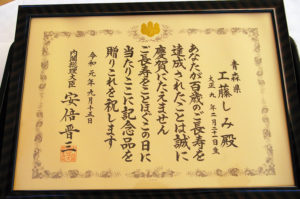 青森県
工藤しみ殿
大正九年二月二十一日生
あなたが百歳のご長寿を
達成されたことは誠に
慶賀にたえません
ご長寿をことほぐこの日に
当たりここに記念品を
贈りこれを祝します
令和元年九月十五日
内閣総理大臣 安倍晋三